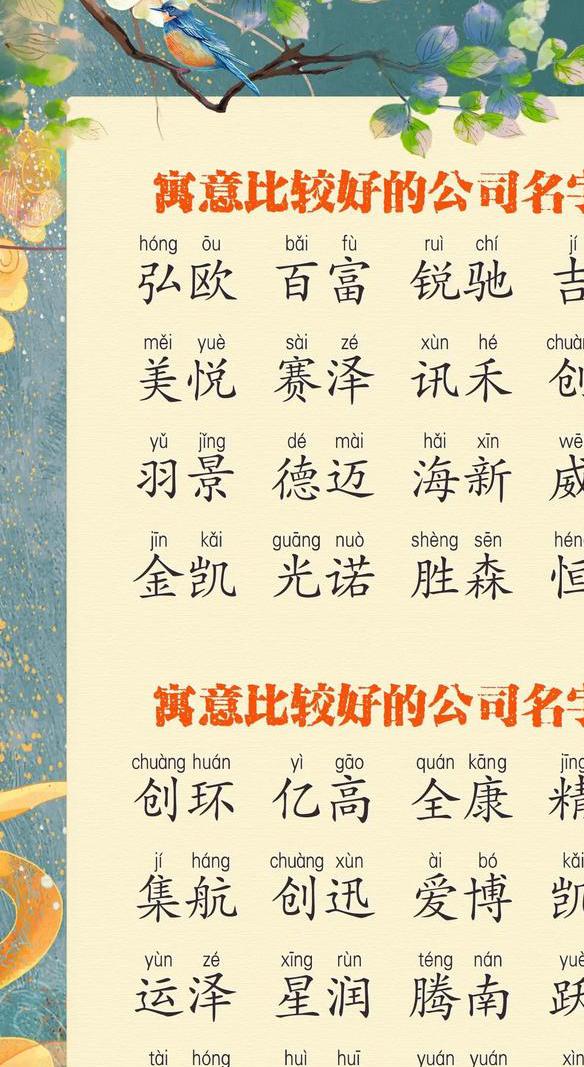 寓意比较好的公司名字
hóng ōu bǎi fù ruì chí jí
弘欧 百富 锐驰 吉
měi yuè sài zé xùn hé chuàn
美悦 赛泽 讯禾 创
yǔ jǐng dé mài hǎi xīn wē
羽景 德迈 海新 威
jīn kǎi guāng nuò shèng sēn hén
金凯 光诺 胜森 恒
寓意比较好的公司名字
chuàng huán yì gāo quán kāng jīng
创环 亿高 全康 精
jí háng chuàng xùn ài bó kǎi
集航 创迅 爱博 凯
yùn zé xīng rùn téng nán yuè
运泽 星润 腾南 跃
tài hóng huì huī yuán yuán xìn